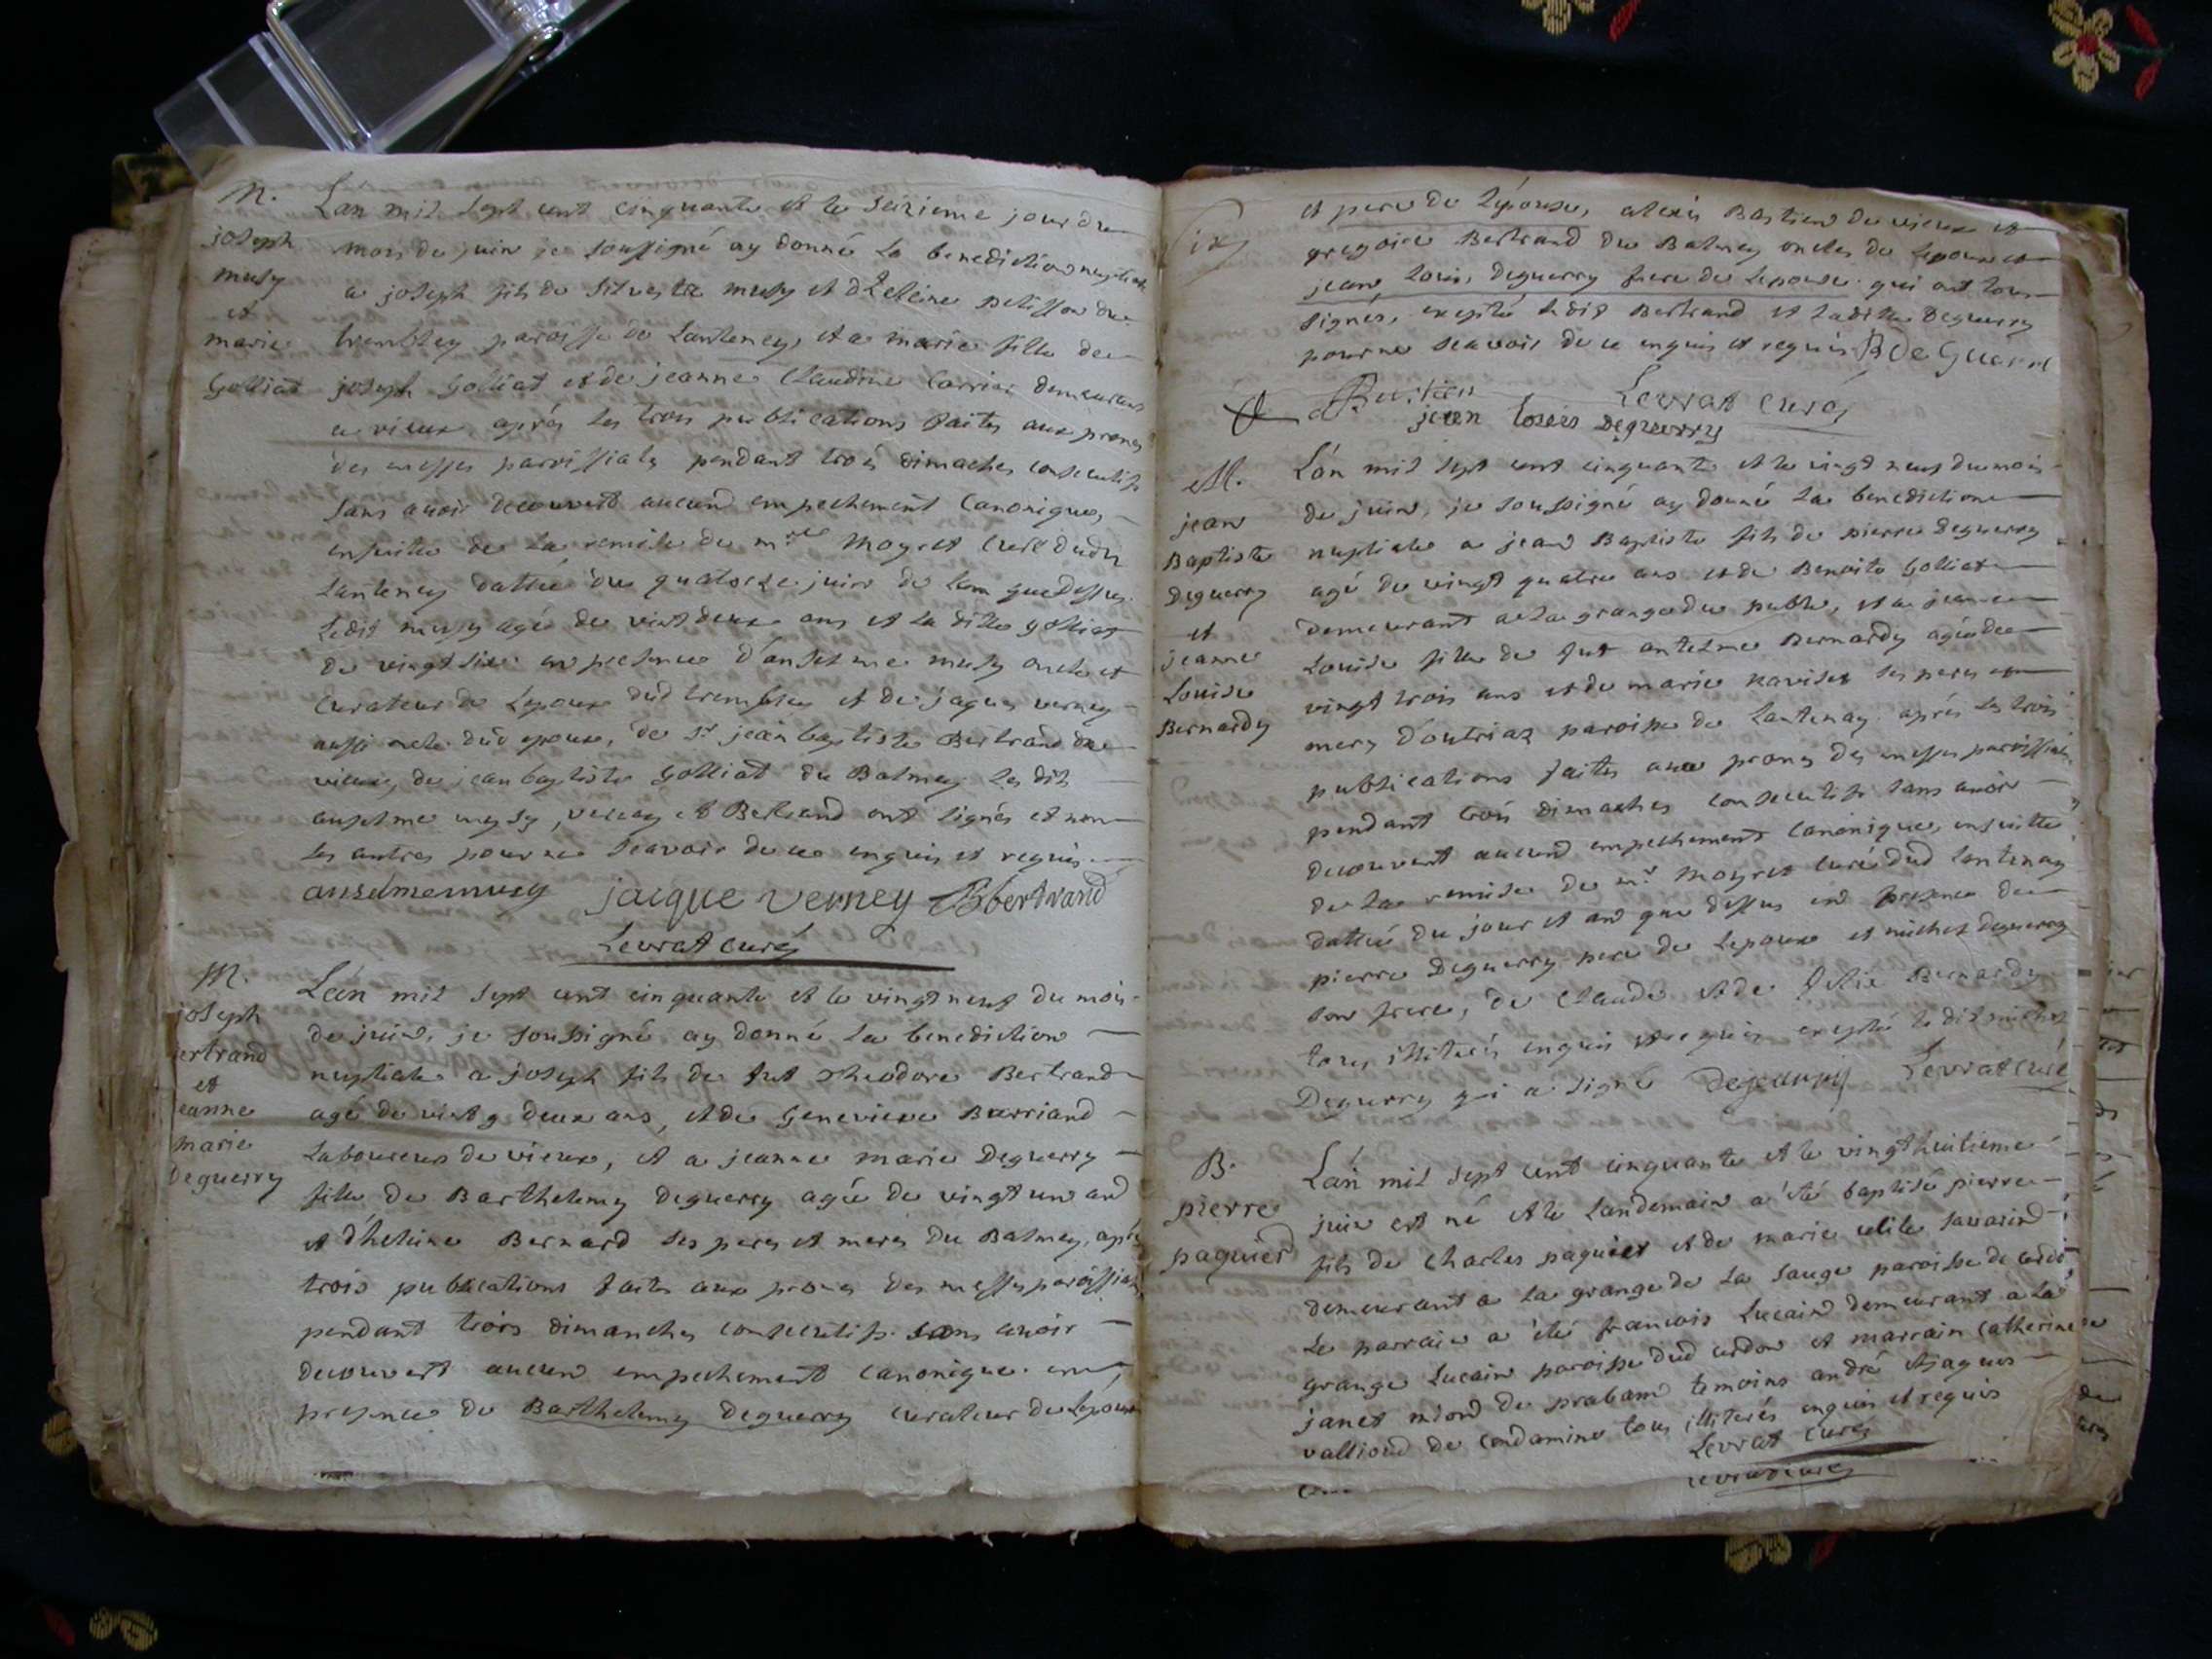 M.
joseph
musy
et
marie
Golliat
Lan mil sept cent cinquante et le seizieme jour du
mois de juin je soussigné ay donné la benediction nuptiale
a joseph fils de Silvestre musy et d'heleine Pelisson du
trembley paroisse de Lanteney, et a marie fille de
joseph Golliat et de jeanne Claudine Carrier demeurant
a vieux après les trois publications faites aux prones
des messes paroissiales pendant trois dimaches consecutifs
sans avoir decouvert aucund empechement Canonique,
ensuitte de la remise de mre Moyret Curé dudt
Lanteney dattée du quatorze juin de lan que dessus.
Ledit musy agé de vint deux ans et la ditte golliat
de vingt six en presence d'anselme musy oncle et
Curateur de Lepoux dud trembley et de jaques verney
aussi oncle dud epoux, de Sr jean baptiste Bertrand de
vieux, de jean baptiste Golliat du Balmey les dits
anselme musy, verney et Bertrand ont signés et non
les autres pour ne Scavoir de ce enquis et requis
anselme musy jacque verney JBbertrand
Levrat curé
M.
joseph
Bertrand
et
jeanne
marie
Deguerry
Lán mil sept cent cinquante et le vingt neuf du mois
de juin, je soussigné ay donné la benediction
nuptiale a joseph fils de fut Theodore Bertrand
agé de vintg deux ans, et de Genevieve Barriand
Laboureur de vieux, et a jeanne marie Deguerry
fille de Barthelemy Deguerry agée de vingt un and
et d'heleine Bernard ses peres et meres du Balmey, aprè
trois publications faites aux prones des messes paroissiales
pendant trois dimanches consecutifs sans avoir
decouvert aucun empechement canonique en
presence de Barthelemy Deguerry curateur de Lépoux
et pere de Lépouse, alexis Bastien de vieux et
gregoire Bertrand du Balmey oncles de Lepoux et
jean Louis Deguerry frere de Lepouse qui ont tous
signés, exepté ledit Bertrand et ladite Deguerry
pour ne Scavoir de ce enquis et requis B De Guerri
a Bastien Levrat curé
jean Louis Deguerry
M.
jean
Baptiste
Deguerry
et
jeanne
Louise
Bernardy
Lán mil sept cent cinquante et le vingt neuf du mois
de juin, je soussigné ay donné la benediction
nuptiale a jean Baptiste fils de pierre Deguerry
agé de vingt quatre ans et de Benoite Golliat
demeurant a la grange du puble, et a jeanne
Louise fille de fut antelme Bernardy agée de
vingt trois ans et de marie ses peres et
mery d'outriaz paroisse de Lantenay après les trois
publications faites aux prones des messes paroissiales
pendant trois dimaches consecutifs sans avoir
decouvert aucund empechement canonique, ensuitte
de la remise de mr Moyret curé dud Lantenay
dattée du jour et and que dessus end presence de
pierre Deguerry pere de Lepoux et michel Deguerry
son frere, de Claude et de felix Bernardy
tous illiterés enquis et requis exepté le dit michel
Deguerry qui a signé Levrat curé
B.
pierre
paquier
Lán mil sept cent cinquante et le vingt huitieme
juin est né et le landemain a été baptisé pierre
fils de Charles paquier et de marie savarin
demeurant a la grange de la sauge paroisse de cerdon
Le parrain a été francois Lucain demeurant a la
grange Lucain paroisse dud cerdon et marrain catherine
janet de prabam temoins andré et jaques
vallioud de Condamine tous illiterés enquis et requis
Levrat curé